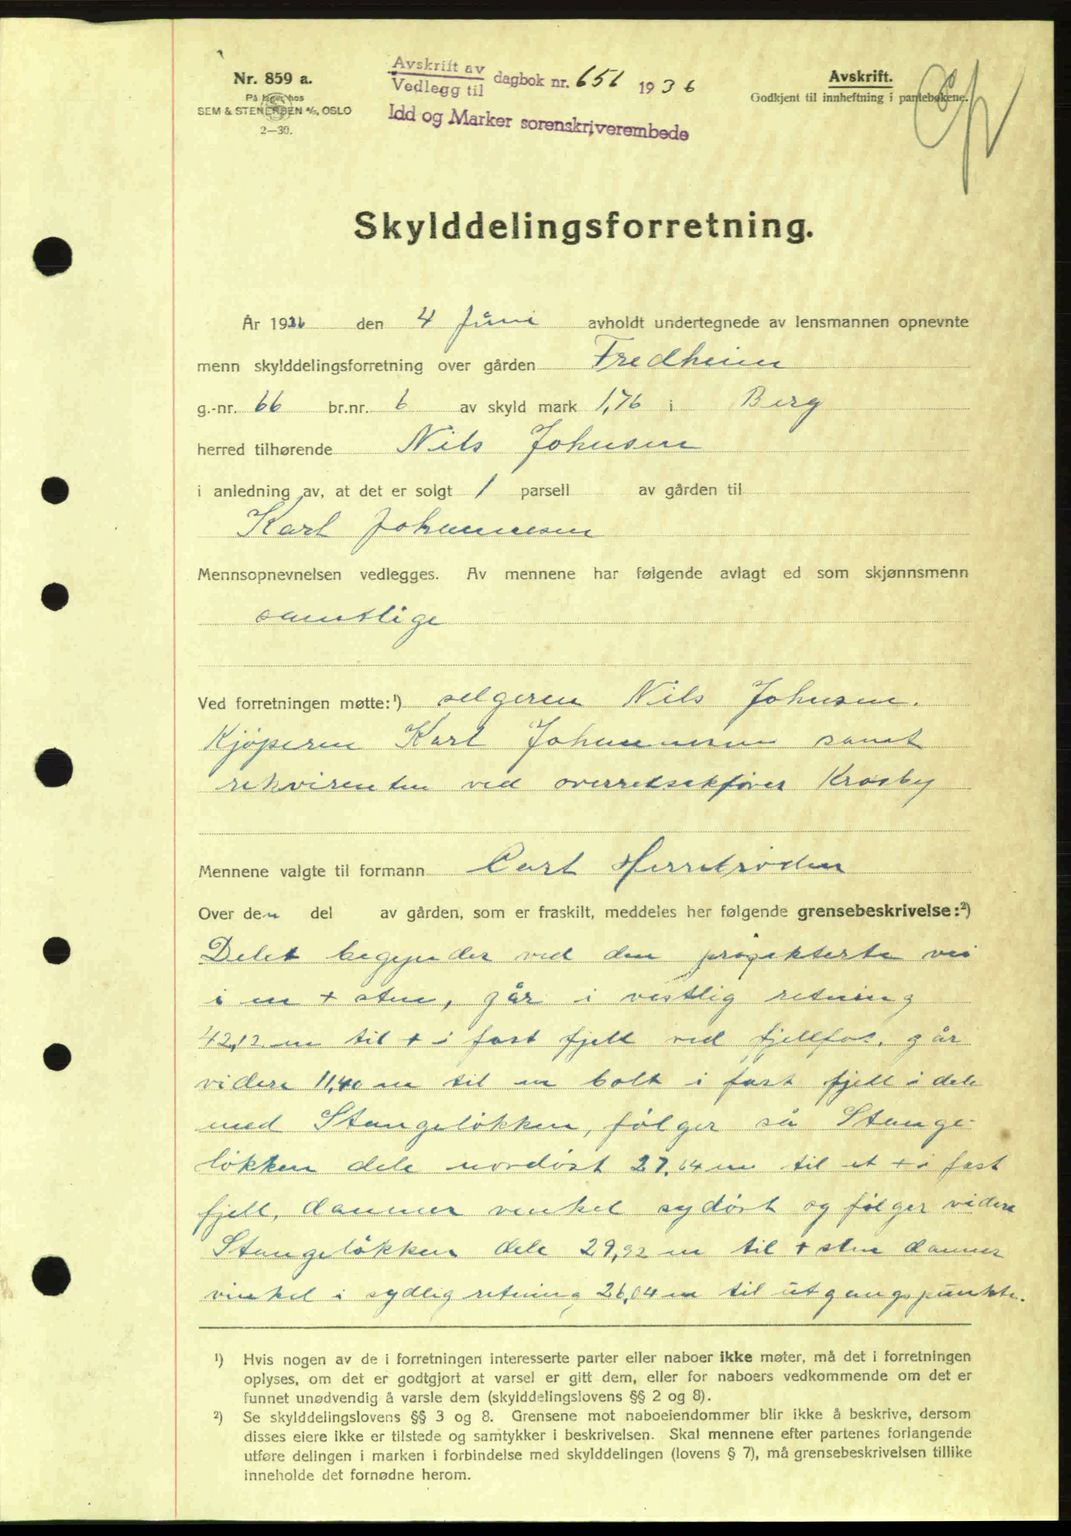 Nr. 859 a.
På lager hos
SEM & STENERSEN A/S, OSLO
2—30.
Avskrift av
Vedlegg til dagbok nr. 656 1936
Idd og Marker sorenskriverembede
Avskrift.
Godkjent til innheftning i pantebøkene.
Skylddelingsforretning.
År 1936 den 4 Juni avholdt undertegnede av lensmannen opnevnte
menn skylddelingsforretning over gården Fredheim
g.-nr. 66 br.nr. 6 av skyld mark 1,76 i Berg
herred tilhørende Nils Johnsen
i anledning av, at det er solgt 1 parsell av gården til
Karl Johannesen
Mennsopnevnelsen vedlegges. Av mennene har følgende avlagt ed som skjønnsmenn
samtlige
Ved forretningen møtte:¹) selgeren Nils Johnsen.
Kjøperen Karl Johannesen samt
rekvirenten ved overretssakfører Krosby
Mennene valgte til formann Carl Herrebrøden
Over den del av gården, som er fraskilt, meddeles her følgende grensebeskrivelse:²)
Delet begynder ved den projekterte vei
i en + sten, går i vestlig retning
42,12 m til + i fast fjell ved fjellfot. går
videre 11,40 m til en bolt i fast fjell i dele
med Stangeløkken, følger så Stange-
løkken dele nordøst 27,64 m til et + i fast
fjell, danner vinkel sydøst og følger videre
Stangeløkken dele 29,92 m til + sten danner
vinkel i sydlig retning 26,04 m til utgangspunkte.
¹) Hvis nogen av de i forretningen interesserte parter eller naboer ikke møter, må det i forretningen
oplyses, om det er godtgjort at varsel er gitt dem, eller for naboers vedkommende om det er
funnet unødvendig å varsle dem (skylddelingslovens §§ 2 og 8).
²) Se skylddelingslovens §§ 3 og 8. Grensene mot naboeiendommer blir ikke å beskrive, dersom
disses eiere ikke er tilstede og samtykker i beskrivelsen. Skal mennene efter partenes forlangende
utføre delingen i marken i forbindelse med skylddelingen (lovens § 7), må grensebeskrivelsen tillike
inneholde det fornødne herom.